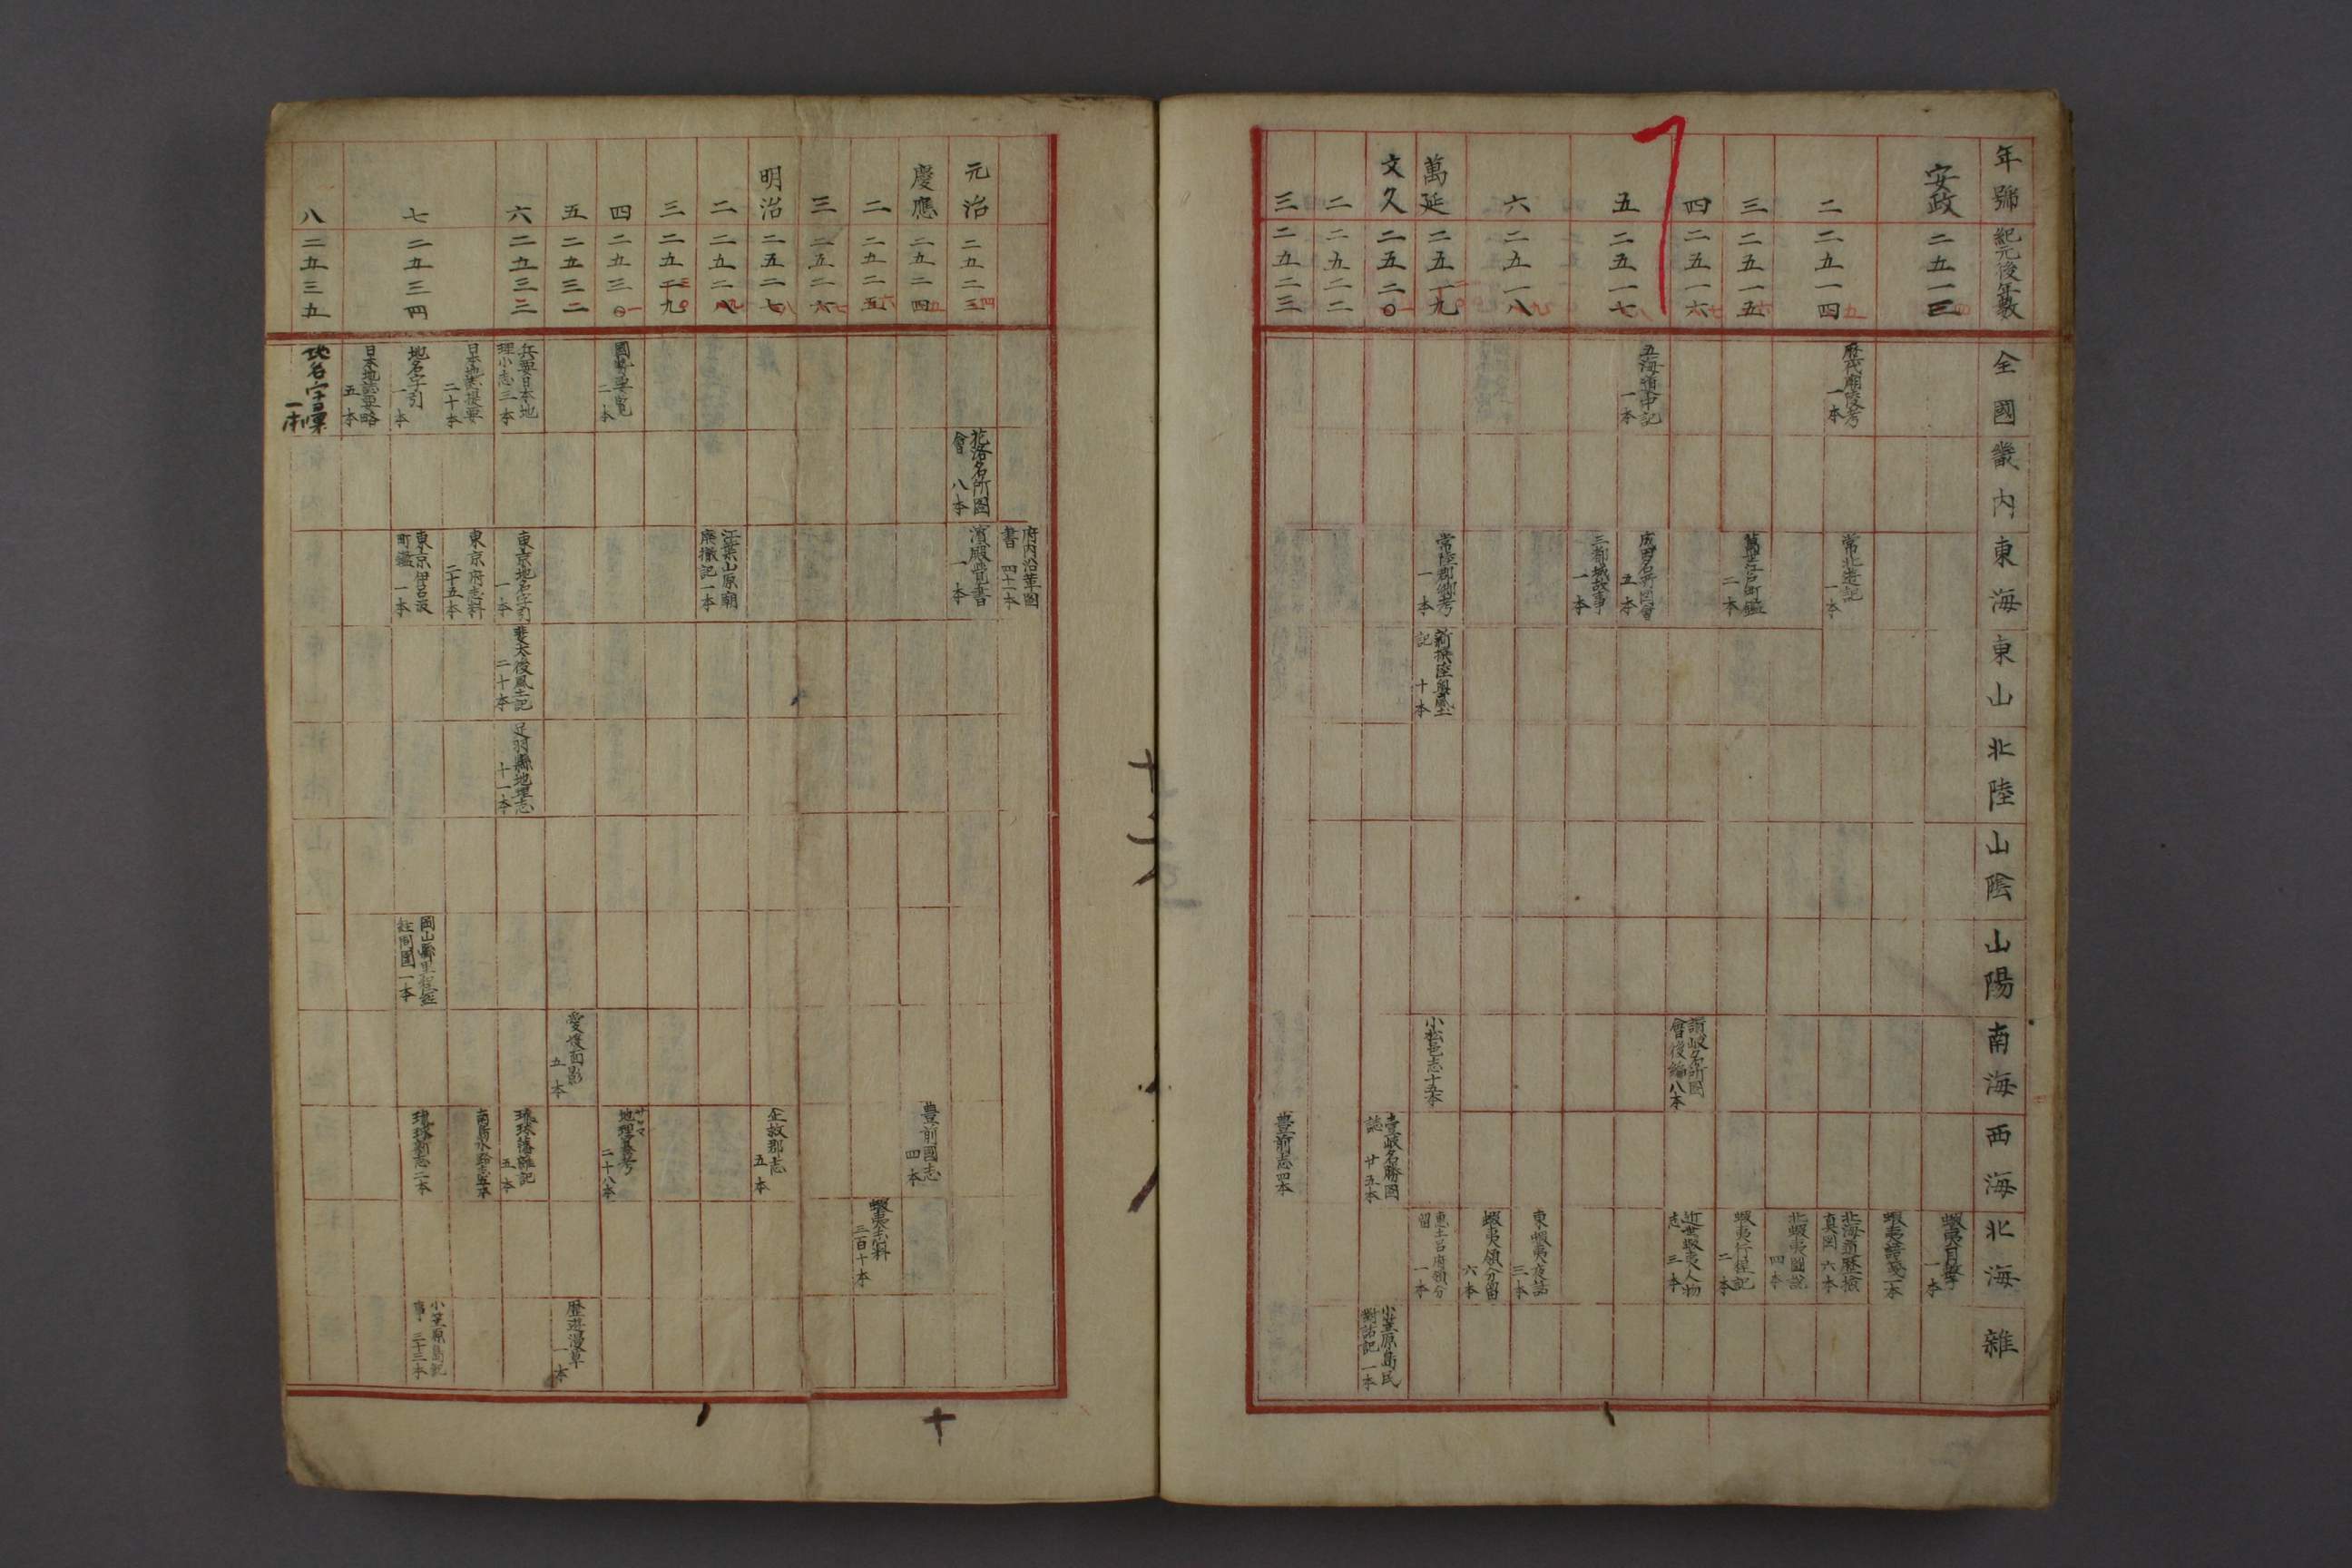 年號
紀元後年數
全國
畿内
東海
東山
北陸
山陰
山陽
南海
西海
北海
雜
安政
二五一三
四
蝦夷日誌
一本
二
二五一四
五
歴代廟陵考
一本
常北遊記
一本
北海道歴檢
真圖 六本
三
二五一五
六
萬世江戸町鑑
二本
北蝦夷圖説
四本
蝦夷行程記
二本
四
二五一六
七
讃岐名所圖
會後編 八本
近世蝦夷人物
志 三本
五
二五一七
八
五海道中記
一本
成田名所圖會
五本
三都城故事
一本
六
二五一八
九
東蝦夷夜話
三本
蝦夷領分留
六本
萬延
二五一九
二〇
常陸郡郷考
一本
新撰陸奥風土
記 十本
小松邑志 十五本
惠土呂府領分
留 一本
文久
二五二〇
一
壹岐名勝圖
誌 廿五本
小笠原島民
對話記 一本
二
二五二二
三
二五二三
豊前志 四本
府内沿革圖
書 四十二本
元治
二五二三
四
花洛名所圖
會 八本
濱殿舊書
一本
慶應
二五二四
五
豊前國志
四本
二
二五二五
六
蝦夷志料
二百十本
三
二五二六
七
明治
二五二七
八
企救郡志
五本
二
二五二八
九
江葉山原廟
廢撤記 一本
三
二五二九
三〇
四
二五三〇
一
國郡要覽
二本
サツマ
地理纂考
二十八本
五
二五三二
愛媛面影
五本
歴遊漫草
一本
六
二五三三
兵要日本地
理小志 三本
東京地名字引
一本
斐太後風土記
二十本
足羽縣地理志
十一本
琉球藩雜記
五本
日本地誌提要
二十本
東京府志料
二十五本
南島水路志 五本
七
二五三四
地名字引
一本
東京伊呂波
町鑑 一本
岡山縣里程姪
註同圖 一本
琉球新志 二本
小笠原島記
事 三十三本
日本地誌要略
五本
八
二五三五
地名字彙
一本
十